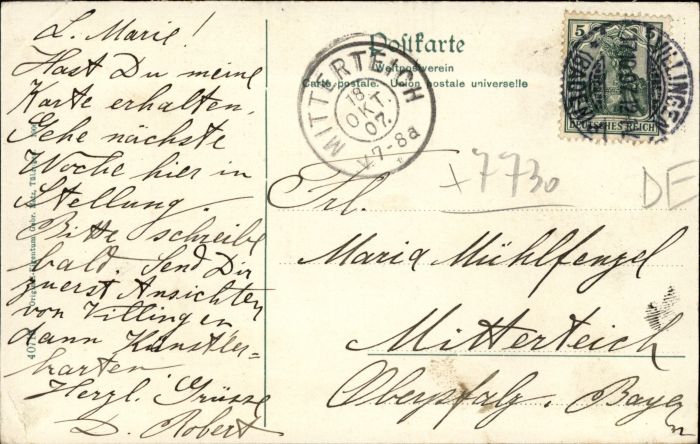 L. Marie!
Hast Du meine
Karte erhalten.
Gehe nächste
Woche hier in
Stellung.
Bitte schreibe
bald. Send Dir
zuerst Ansichten
von Villingen
dann Künstler-
karten.
Herzl. Grüsse
D. Robert
Postkarte
Weltpostverein
Carte postale. Union postale universelle
MITTERTEICH
18.
OKT.
07.
V.7-8a
5
DEUTSCHES REICH
VILLINGEN
+7730
DE
Frl.
Maria Mühlfenzel
Mitterteich
Oberpfalz. Bayern